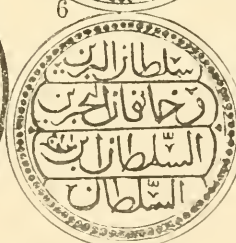 6
سلطان البرين
و خاقان البحرين
السلطان ابن
السلطان